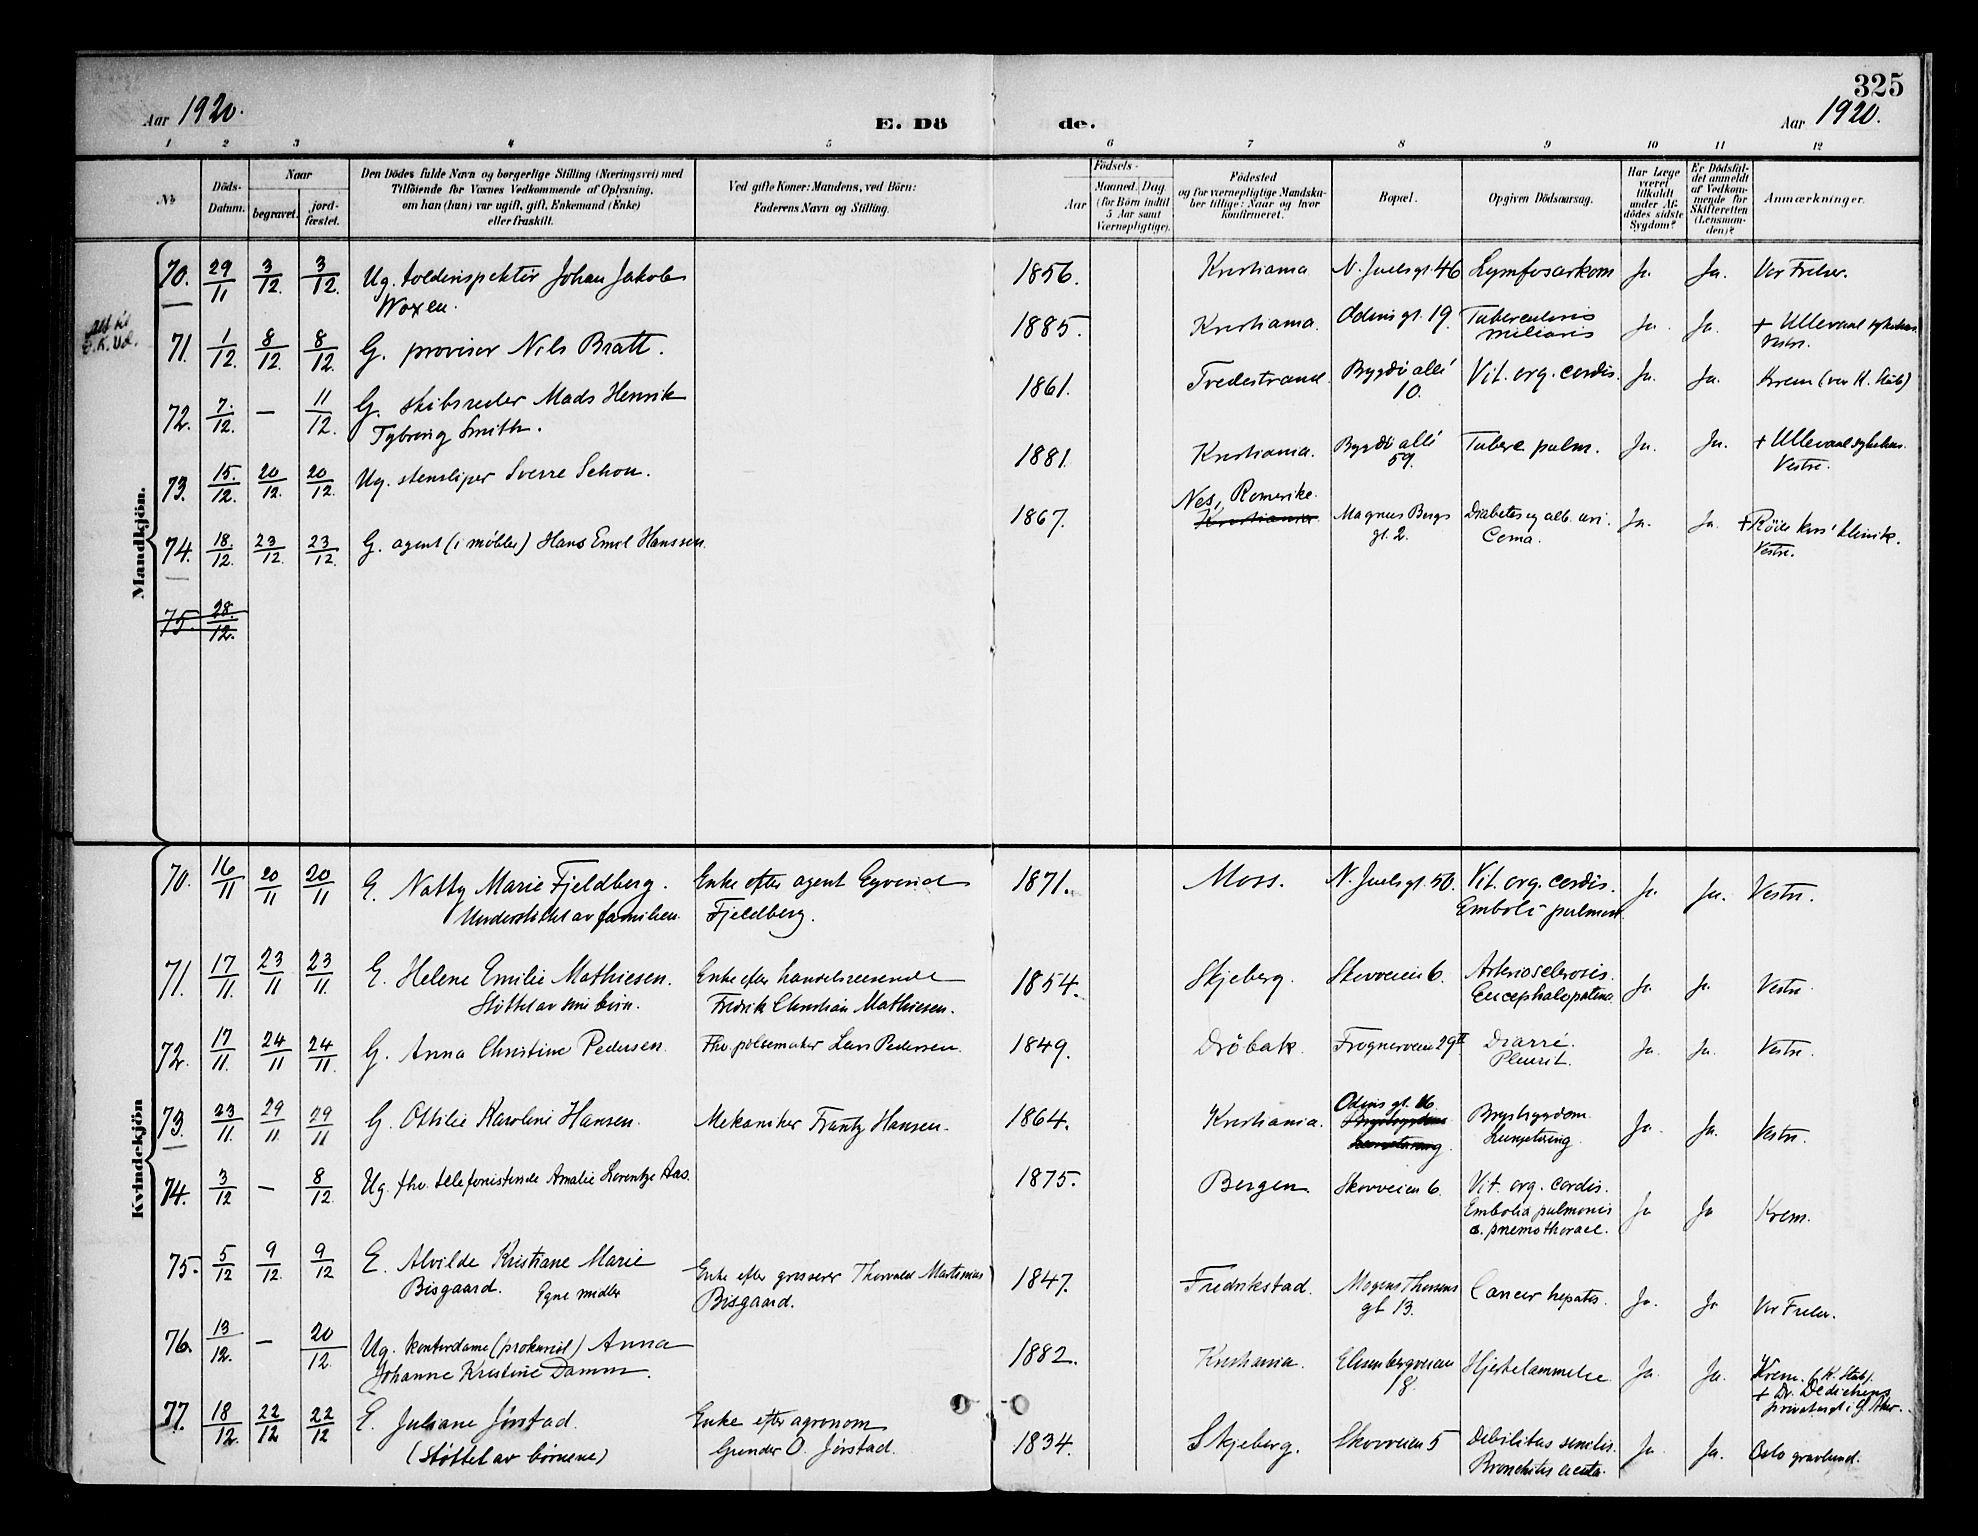 325
Aar 1920.
E. Dö de.
Aar 1920.
1 2 3 4 5 6 7 8 9 10 11 12
No
Döds-
Datum.
Naar
begravet.
jord-
fæstet.
Den Dödes fulde Navn og borgerlige Stilling (Næringsvei) med
Tilföiende for Voxnes Vedkommende af Oplysning,
om han (hun) var ugift, gift, Enkemand (Enke)
eller fraskilt.
Ved gifte Koner: Mandens, ved Börn:
Faderens Navn og Stilling.
Födsels-
Aar
Maaned. Dag.
(for Börn indtil
5 Aar samt
Værnepligtige).
Födested
og for værnepligtige Mandska-
ber tillige: Naar og hvor
konfirmeret.
Bopæl.
Opgiven Dödsaarsag.
Har Læge
været
tilkaldt
under Af-
dödes sidste
Sygdom?
Er Dödsfal-
det anmeldt
af Vedkom-
mende for
Skifteretten
(Lensman-
den)?
Anmærkninger.
Mandkjön.
70. 29/11 3/12. 3/12. Ug. toldinspektör Johan Jakob
Woxen.
1856. Kristiania N. Juels gt. 46 Lymfosarkom Ja. Ja. Vor Frelser.
71. 1/12. 8/12. 8/12. G. provisor Nils Bratt.
1885. Kristiania. Odins gt. 19. Tuberculosis
miliaris Ja. Ja. + Ullevaal sykehus.
Vestre.
72. 7./12. — 11/12. G. skibsreder Mads Henrik
Tybring Smith.
1861. Tvedestrand. Bygdö allé
10. Vit. org. cordis. Ja. Ja. Krem
73. 15./12. 20/12. 20/12. Ug. stensliper Sverre Schou.
1881. Kristiania. Bygdö allé
59. Tuberc pulm. Ja. Ja. + Ullevaal sykehus.
Vestre.
74. 18./12. 23/12. 23/12. G. agent (i møbler) Hans Emil Hanssen.
1867. Nes, Romerike.
Kristiania Magnus Bergs
gt. 2. Diabetes og alb. uri.
Coma. Ja. Ja. + Röde kors' klinik.
Vestre.
75. 28./12.
Kvindekjön
70. 16/11 20/11 20/11 E. Natty Marie Fjeldberg.
Understöttet av familien.
Enke efter agent Eyvind
Fjeldberg.
1871. Moss. N. Juels gt. 50. Vit. org. cordis.
Emboli pulmon. Ja. Ja. Vestre.
71. 17/11. 23/11 23/11. E. Helene Emilie Mathiesen.
Støttet av sine börn.
Enke efter handelsreisende
Fredrik Christian Mathiesen.
1854. Skjeberg. Skovveien 6. Arteriosclerosis.
Encephalopatia. Ja. Ja. Vestre
72. 17/11. 24/11 24/11. G. Anna Christine Pedersen.
Fhv. pölsemaker Lars Pedersen.
1849. Dröbak. Frognerveien 29II Diarré.
Pleurit. Ja. Ja. Vestre.
73. 23/11. 29/11. 29/11 G. Ottilie Karoline Hansen.
Mekaniker Frantz Hansen.
1864. Kristiania. Odins gt. 16
Brystsygdom
Lungetæring. Ja. Ja. Vestre.
74. 3/12 — 8/12. Ug. fhv. telefonistinde Amalie Lorentze Aas.
1875. Bergen. Skovveien 6. Vit. org. cordis.
Embolia pulmonis
c. pnemothorace. Ja Ja Krem.
75. 5/12 9/12. 9/12 E. Alvilde Kristiane Marie
Bisgaard. Egne midler
Enke efter grosserer Thorvald Martinius
Bisgaard.
1847. Fredrikstad. Mogens Thorsens
gt 13. Cancer hepatis. Ja. Ja Vor Frelser.
76. 13/12. — 20/12. Ug. kontordame (prokurist) Anna
Johanne Kristine Damm.
1882. Kristiania. Elisenbergveien
18. Hjertelammelse. Ja. Ja. Krem. (K. Stub).
+ Dr. Dedichens
privatasyl i Ø. Aker.
77. 18/12. 22/12 22/12 E. Juliane Jørstad.
(Støttet av børnene)
Enke efter agronom
Gunder O. Jørstad.
1834. Skjeberg. Skovveien 5 Debilitas senilis.
Bronchitis acuta. Ja. Ja. Oslo gravlund.